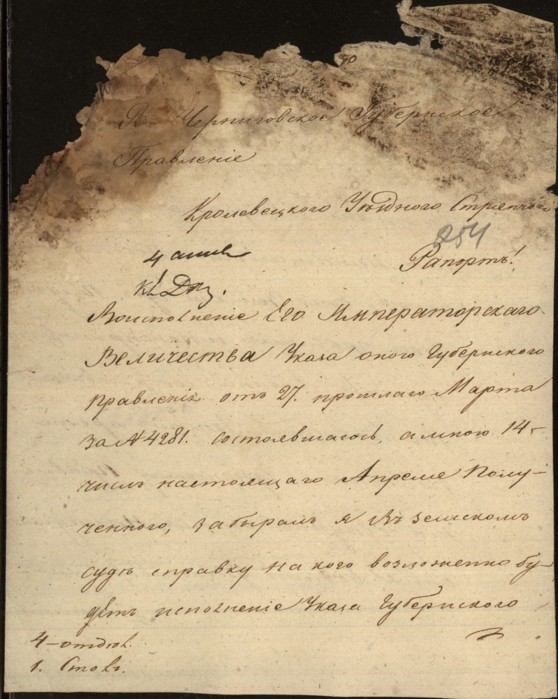 Въ Черниговское Губернское
Правленіе
Кролевецкого Уѣздного Стряпчого
254
Рапортъ!
Воисполненіе Его Императорскаго
Величества Указа оного Губернского
Правленія отъ 27. прошлаго Марта
за № 4281. состоявшагось, а мною 14-
числъ настоящаго Апреля Полу-
ченного, забыралъ я въ земском
судѣ справку на кого возложенно бу-
детъ исполненіе Указа Губернского
4-отдѣл.
1. Столъ.